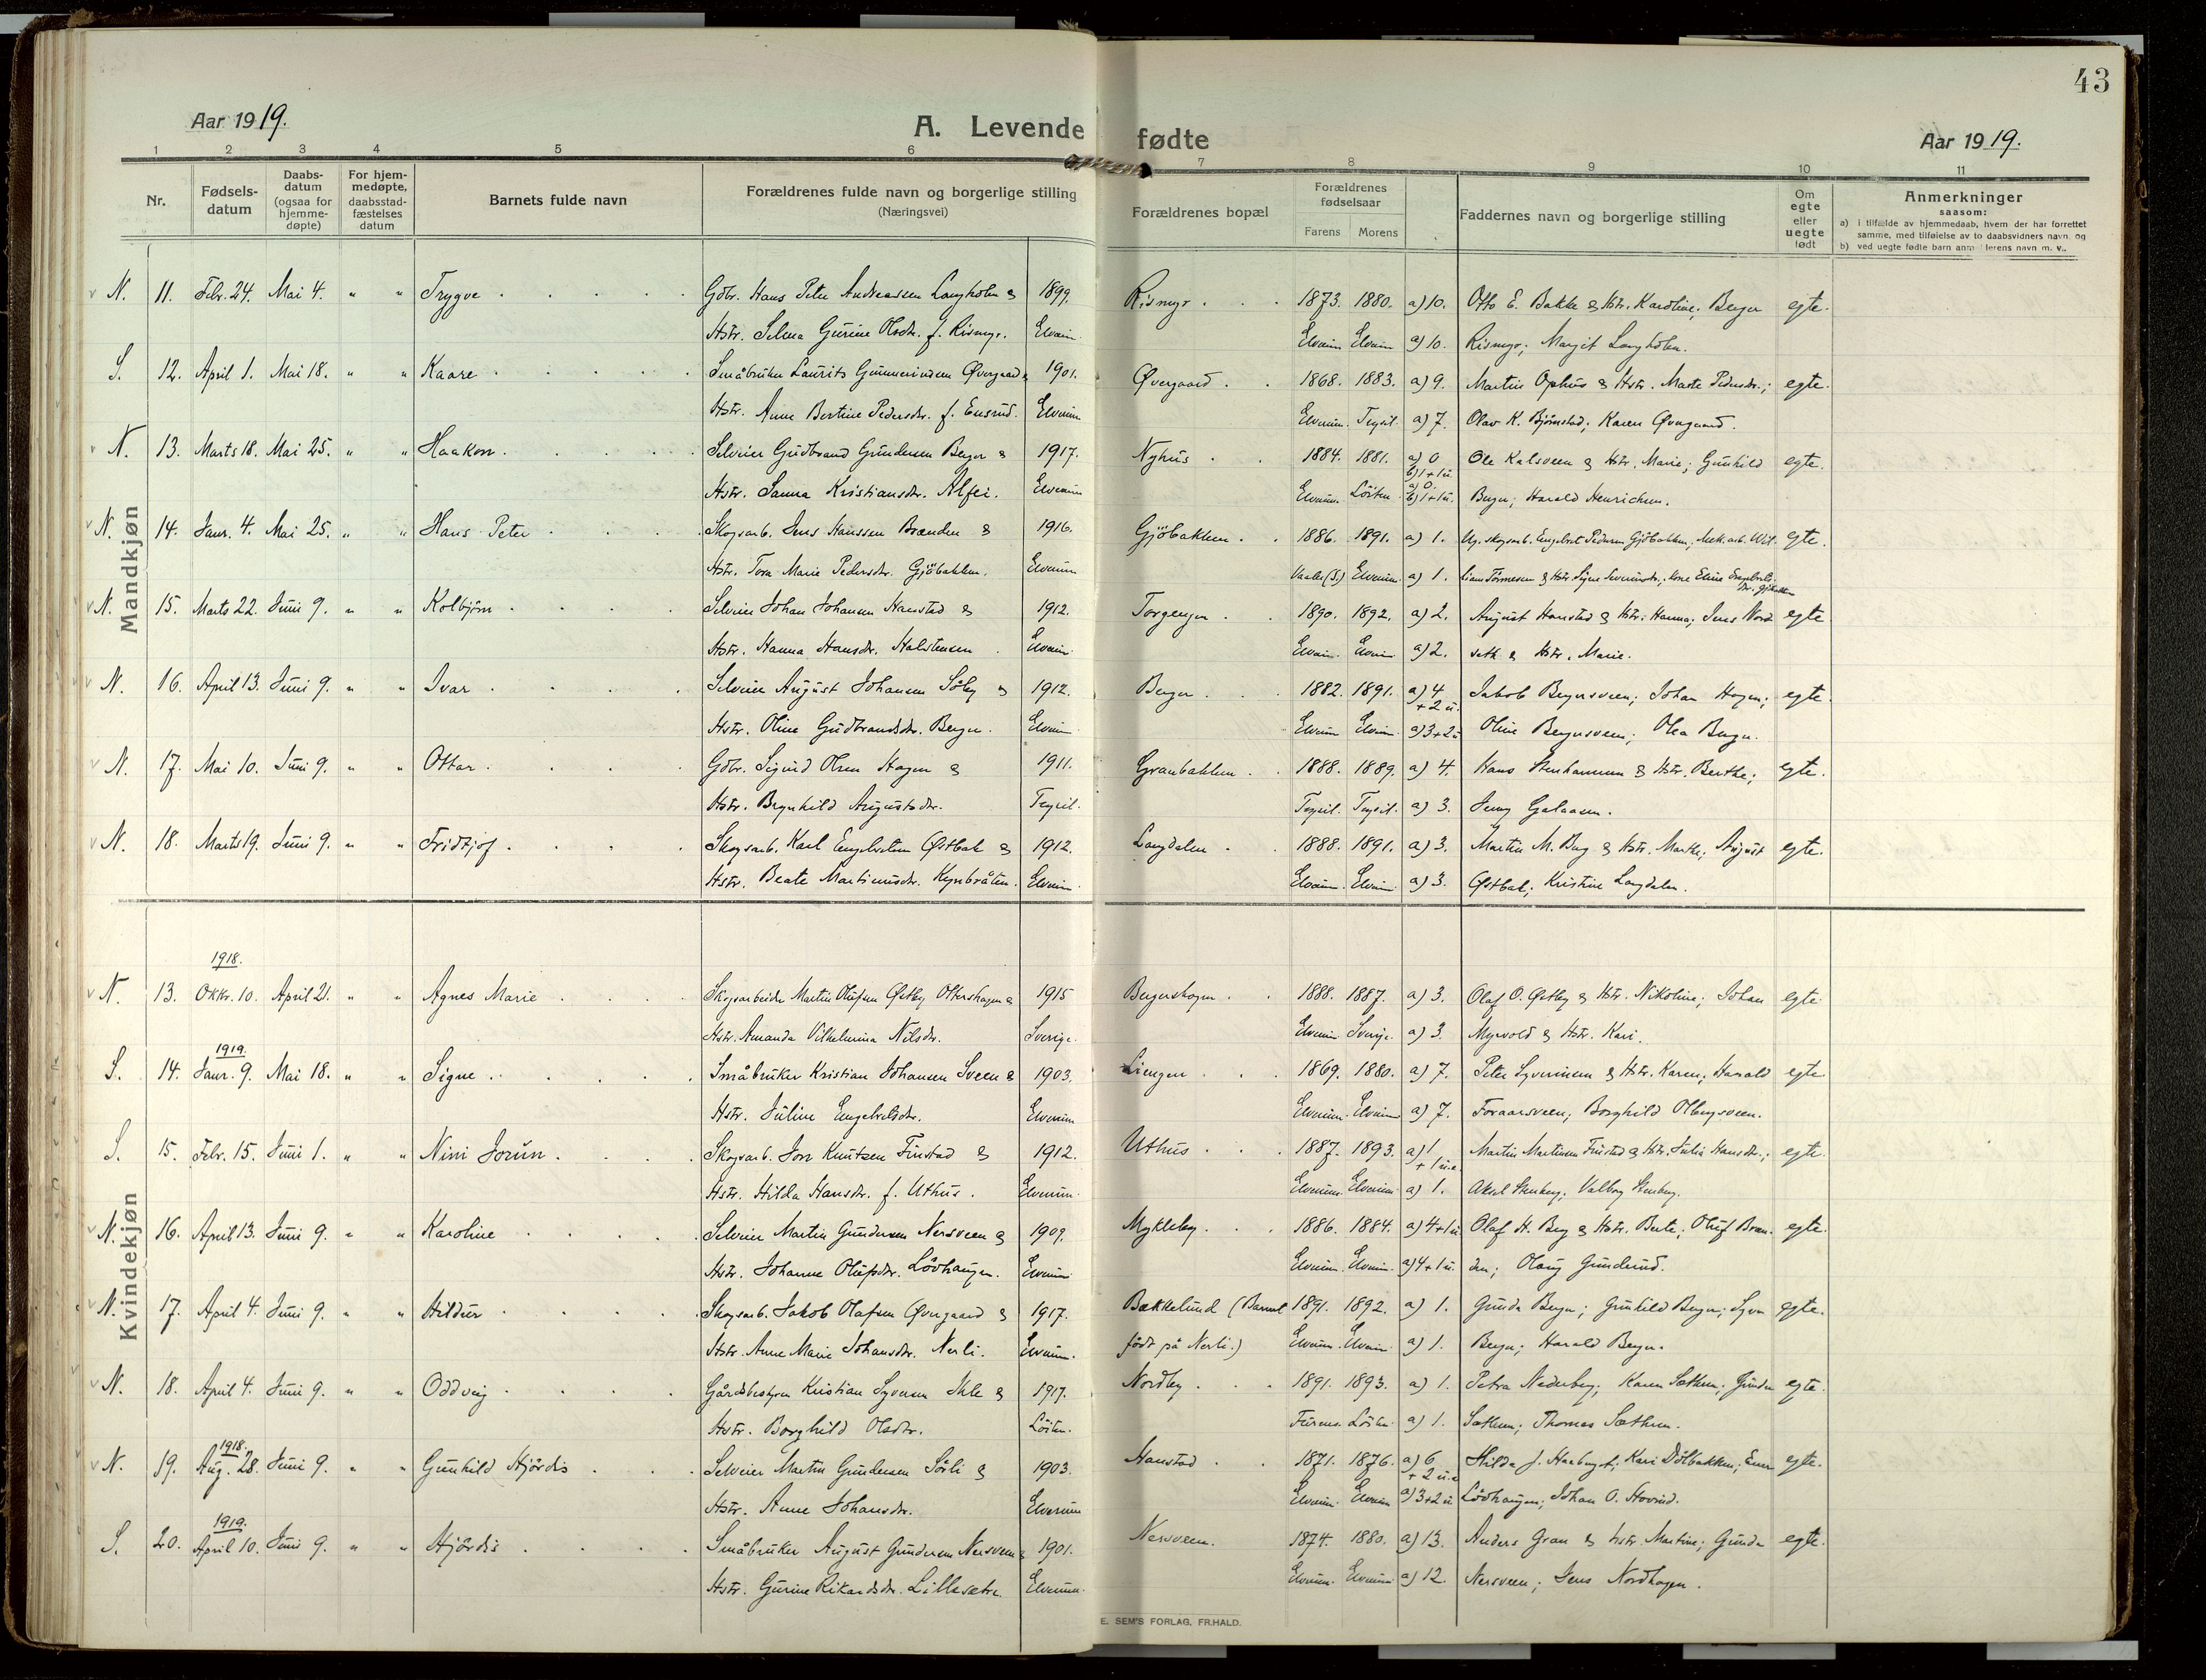 43
Aar 1919.
A. Levende fødte
Aar 1919.
1 2 3 4 5 6 7 8 9 10 11
Nr.
Fødsels-
datum
Daabs-
datum
(ogsaa for
hjemme-
døpte)
For hjem-
medøpte,
daabsstad-
fæstelses
datum
Barnets fulde navn
Forældrenes fulde navn og borgerlige stilling
(Næringsvei)
Forældrenes bopæl
Forældrenes
fødselsaar
Farens Morens
Faddernes navn og borgerlige stilling
Om
egte
eller
uegte
født
Anmerkninger
saasom:
a) i tilfælde av hjemmedaab, hvem der har forrettet
samme, med tilføielse av to daabsvidners navn. og
b) ved uegte fødte barn anmelderens navn m. v..
Mandkjøn
N. 11. Febr. 24. Mai 4. " " Trygve Gdbr. Hans Peter Andreassen Langholen & 1899. Rismyr 1873. 1880. a) 10. Otto E. Bakke & Hstr. Karoline; Berger egte.
Hstr. Selma Gurine Olsdtr. f. Rismyr. Elverum. Elverum Elverum a) 10. Rismyr; Margit Langholen.
S. 12. April 1. Mai 18. " " Kaare Småbruker Laurits Gunnerius­sen Øvergaard & 1901. Øvergaard 1868. 1883. a) 9. Martin Ophus & Hstr. Marte Pedersdtr.; egte.
Hstr. Anne Bertine Pedersdtr. f. Ensrud. Elverum Elverum. Trysil a) 7. Olav K. Bjørnstad; Karen Øvergaard.
N. 13. Marts 18. Mai 25. " " Haakon Selveier Gudbrand Gundersen Berger & 1917. Nyhus 1884. 1881. a) 0 b) 1+1u. Ole Kalsveen & Hstr. Marie; Gunhild egte.
Hstr. Sanna Kristiansdtr. Alfei. Elverum Elverum. Löiten a) 0. b) 1+1u. Berger; Harald Henriksen.
N. 14. Janr. 4. Mai 25. " " Hans Peter Skogsarb. Jens Hanssen Brænden & 1916. Gjöbakken 1886. 1891. a) 1. Ug. skogsarb. Engebret Pedersen Gjöbakken; Mek. arb. Wil- egte.
Hstr. Tora Marie Pedersdtr. Gjöbakken. Elverum Vaaler (S.) Elverum. a) 1. liam Törmoen & Hstr. Signe Severinsdtr.; Kone Eline Engebrets-
dtr. Gjöbakken
N. 15. Marts 22. Juni 9. " " Kolbjörn Selveier Johan Johansen Hanstad & 1912. Torgenger 1890. 1892. a) 2. August Hanstad & Hstr. Hanna; Jens Nord egte
Hstr. Hanna Hansdtr. Halstensen Elverum Elverum. Elverum a) 2. seth & Hstr. Marie.
N. 16. April 13. Juni 9. " " Ivar Selveier August Johansen Söby & 1912. Berger 1882. 1891. a) 4 +2u. Jakob Bergersveen; Johan Hagen; egte.
Hstr. Oline Gudbrandsdtr. Berger. Elverum Elverum Elverum a) 3+2u Oline Bergersveen; Olea Berger.
N. 17. Mai 10. Juni 9. " " Ottar Gdbr. Sigurd Olsen Hagen & 1911. Granbakken 1888. 1889. a) 4. Hans Stenhammer & Hstr. Berthe; egte.
Hstr. Brynhild Augustsdtr. Trysil. Trysil. Trysil. a) 3. Jenny Galaasen.
N. 18. Marts 19. Juni 9. " " Fridtjof Skogsarb. Karl Engebretsen Østbak & 1912. Langdalen 1888. 1891. a) 3. Martin M. Berg & Hstr. Marthe; August egte.
Hstr. Beate Martinusdtr. Kynbråten. Elverum. Elverum. Elverum. a) 3. Østbak; Kristine Langdalen.
Kvindekjøn
1918.
N. 13. Oktr. 10. April 21. " " Agnes Marie Skogsarbeider Martin Olufsen Østby Ottershagen & 1915 Bergershagen 1888. 1887. a) 3. Olaf O. Østby & Hstr. Nikoline; Johan egte.
Hstr. Amanda Vilhelmina Nilsdtr. Sverige. Elverum Sverige. a) 3. Myrvold & Hstr. Kari.
1919.
S. 14. Janr. 9. Mai 18. " " Signe Småbruker Kristian Johansen Sveen & 1903. Liengen 1869. 1880. a) 7. Peter Syversen & Hstr. Karen; Harald egte
Hstr. Juline Engebretsdtr. Elverum Elverum. Elverum a) 7. Foraarsveen; Borghild Olbergsveen.
S. 15. Febr. 15. Juni 1. " " Nini Jorun Skogsarb. Jon Knutsen Finstad & 1912. Uthus 1887. 1893. a) 1 + 1u.e. Martin Martinsen Finstad & Hstr. Julia Hansdtr.; egte.
Hstr. Hilda Hansdtr. f. Uthus. Elverum. Elverum. Elverum. a) 1. Aksel Stenberg; Valborg Stenberg.
N. 16. April 13. Juni 9. " " Karoline Selveier Martin Gundersen Nersveen & 1909. Mykleby 1886. 1884. a) 4+1u Olaf H. Berg & Hstr. Berte; Oluf Bræn- egte.
Hstr. Johanne Olufsdtr. Lövhaugen. Elverum Elverum. Elverum. a) 4+1u. den; Olaug Gunderud.
N. 17. April 4. Juni 9. " " Hildur Skogsarb. Jakob Olafsen Øvergaard & 1917. Bækkelund (Barnet 1891. 1892. a) 1. Gunda Berger; Gunhild Berger; Syver egte.
Hstr. Anne Marie Johansdtr. Nerli. Elverum. født på Nerli.) Elverum. Elverum a) 1. Berger; Harald Berger.
N. 18. April 4. Juni 9. " " Oddveig Gårdsbestyrer Kristian Syversen Ihle & 1917. Nordby 1891. 1893. a) 1. Petra Nederberg; Karen Sæthern; Gunder egte.
Hstr. Borghild Olsdtr. Löiten. Furnes. Löiten a) 1. Sæthern; Thomas Sæthern.
1918.
N. 19. Aug. 28. Juni 9. " " Gunhild Hjördis Selveier Martin Gundersen Sörli & 1903. Hanstad 1871. 1876. a) 6 + 2u.e Hilda J. Haaberget; Kari Dölbakken; Einar egte.
Hstr. Anne Johansdtr. Elverum Elverum. Elverum a) 3+2u Lövhaugen; Johan O. Hovind.
1919.
S. 20. April 10. Juni 9. " " Hjördis Småbruker August Gundersen Nersveen & 1901. Nersveen. 1874. 1880. a) 13. Anders Gran & Hstr. Martine; Gunda egte.
Hstr. Gurine Rikardsdtr. Lillesætre. Elverum. Elverum. Elverum a) 12. Nersveen; Jens Nordhagen.
E. SEM'S FORLAG, FR.HALD.